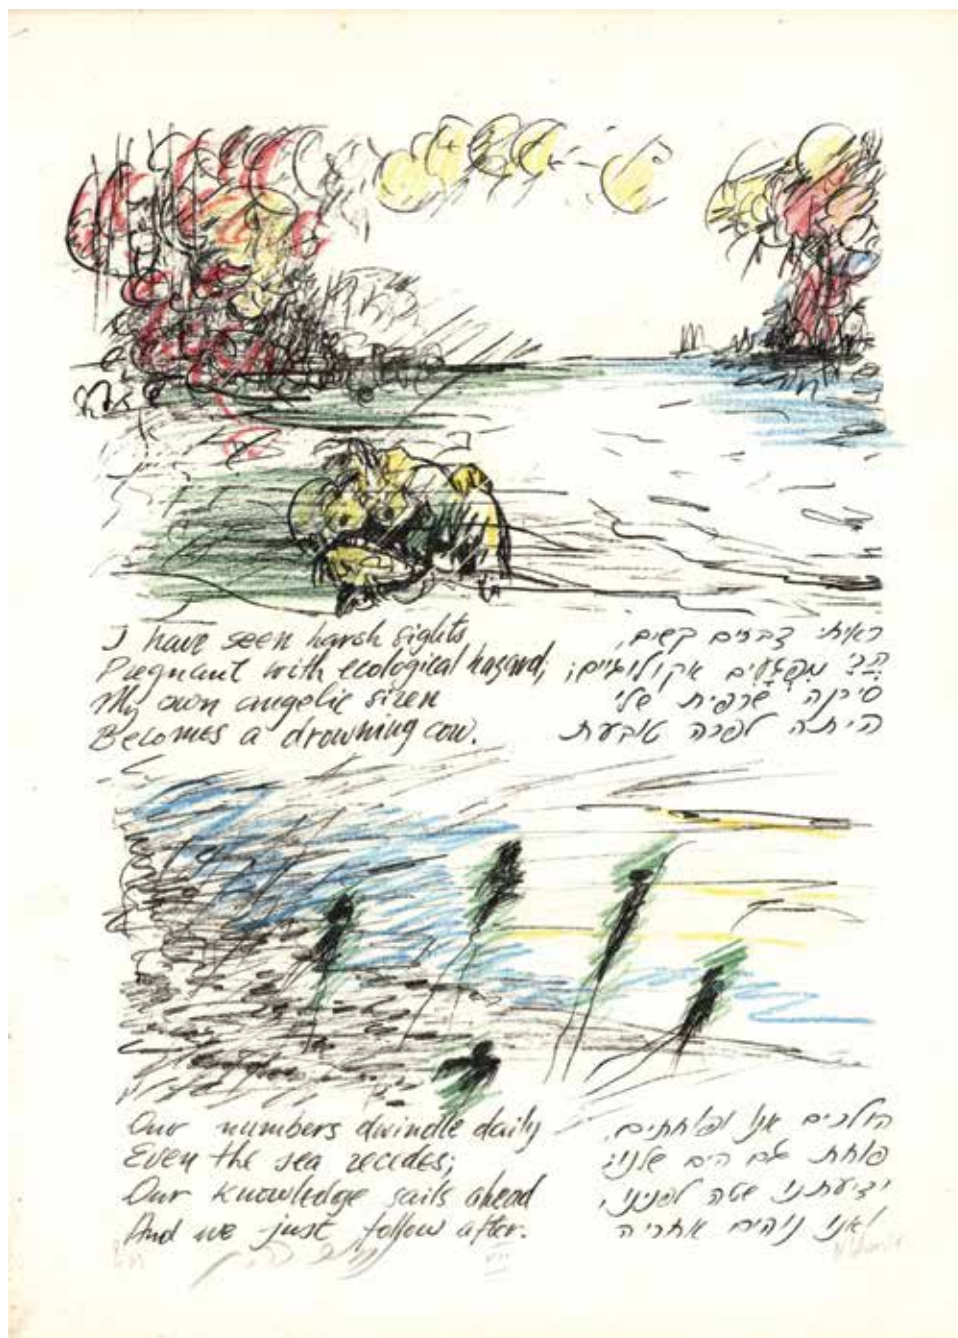 I have seen harsh sights
Pregnant with ecological hazard;
My own angelic siren
Becomes a drowning cow.
ראיתי דברים קשים,
הרי מפגעים אקולוגיים;
סירנה שרפית שלי
היתה לפרה טובעת
Our numbers dwindle daily
Even the sea recedes;
Our knowledge sails ahead
And we just follow after.
הולכים אנו ופוחתים,
פוחת גם הים שלנו;
ידיעתנו שטה לפנינו,
ואנו נוהים אחריה
VII